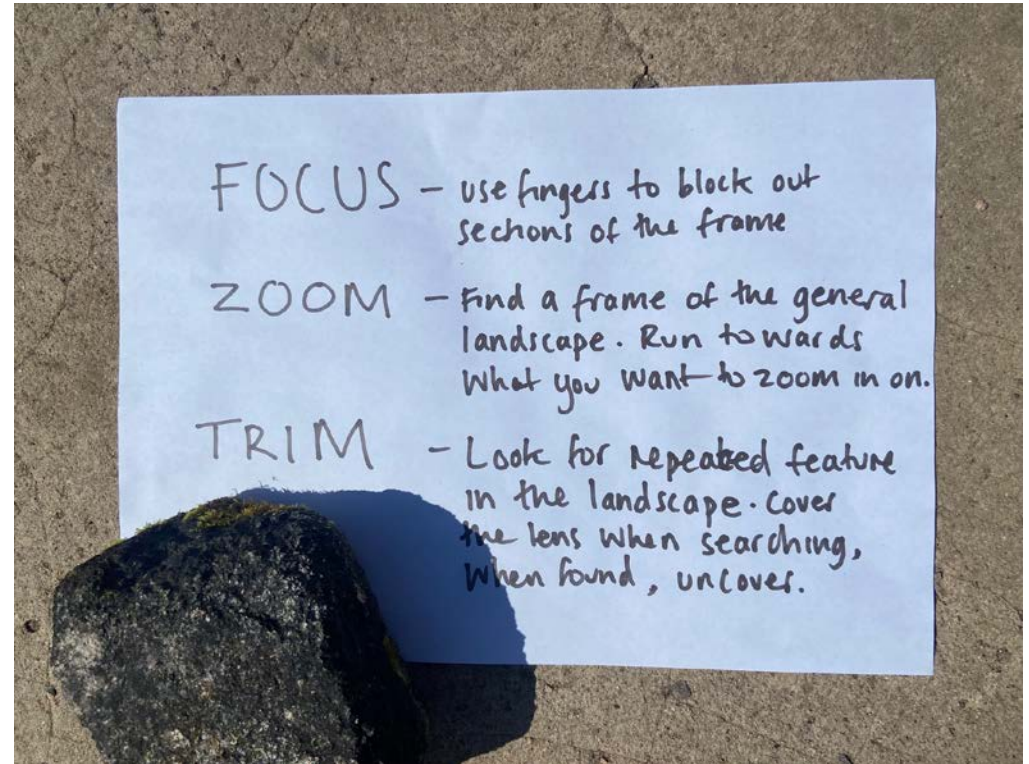 FOCUS - use fingers to block out
sections of the frame
ZOOM - Find a frame of the general
landscape. Run towards
what you want to zoom in on.
TRIM - Look for repeated feature
in the landscape. Cover
the lens when searching,
when found, uncover.